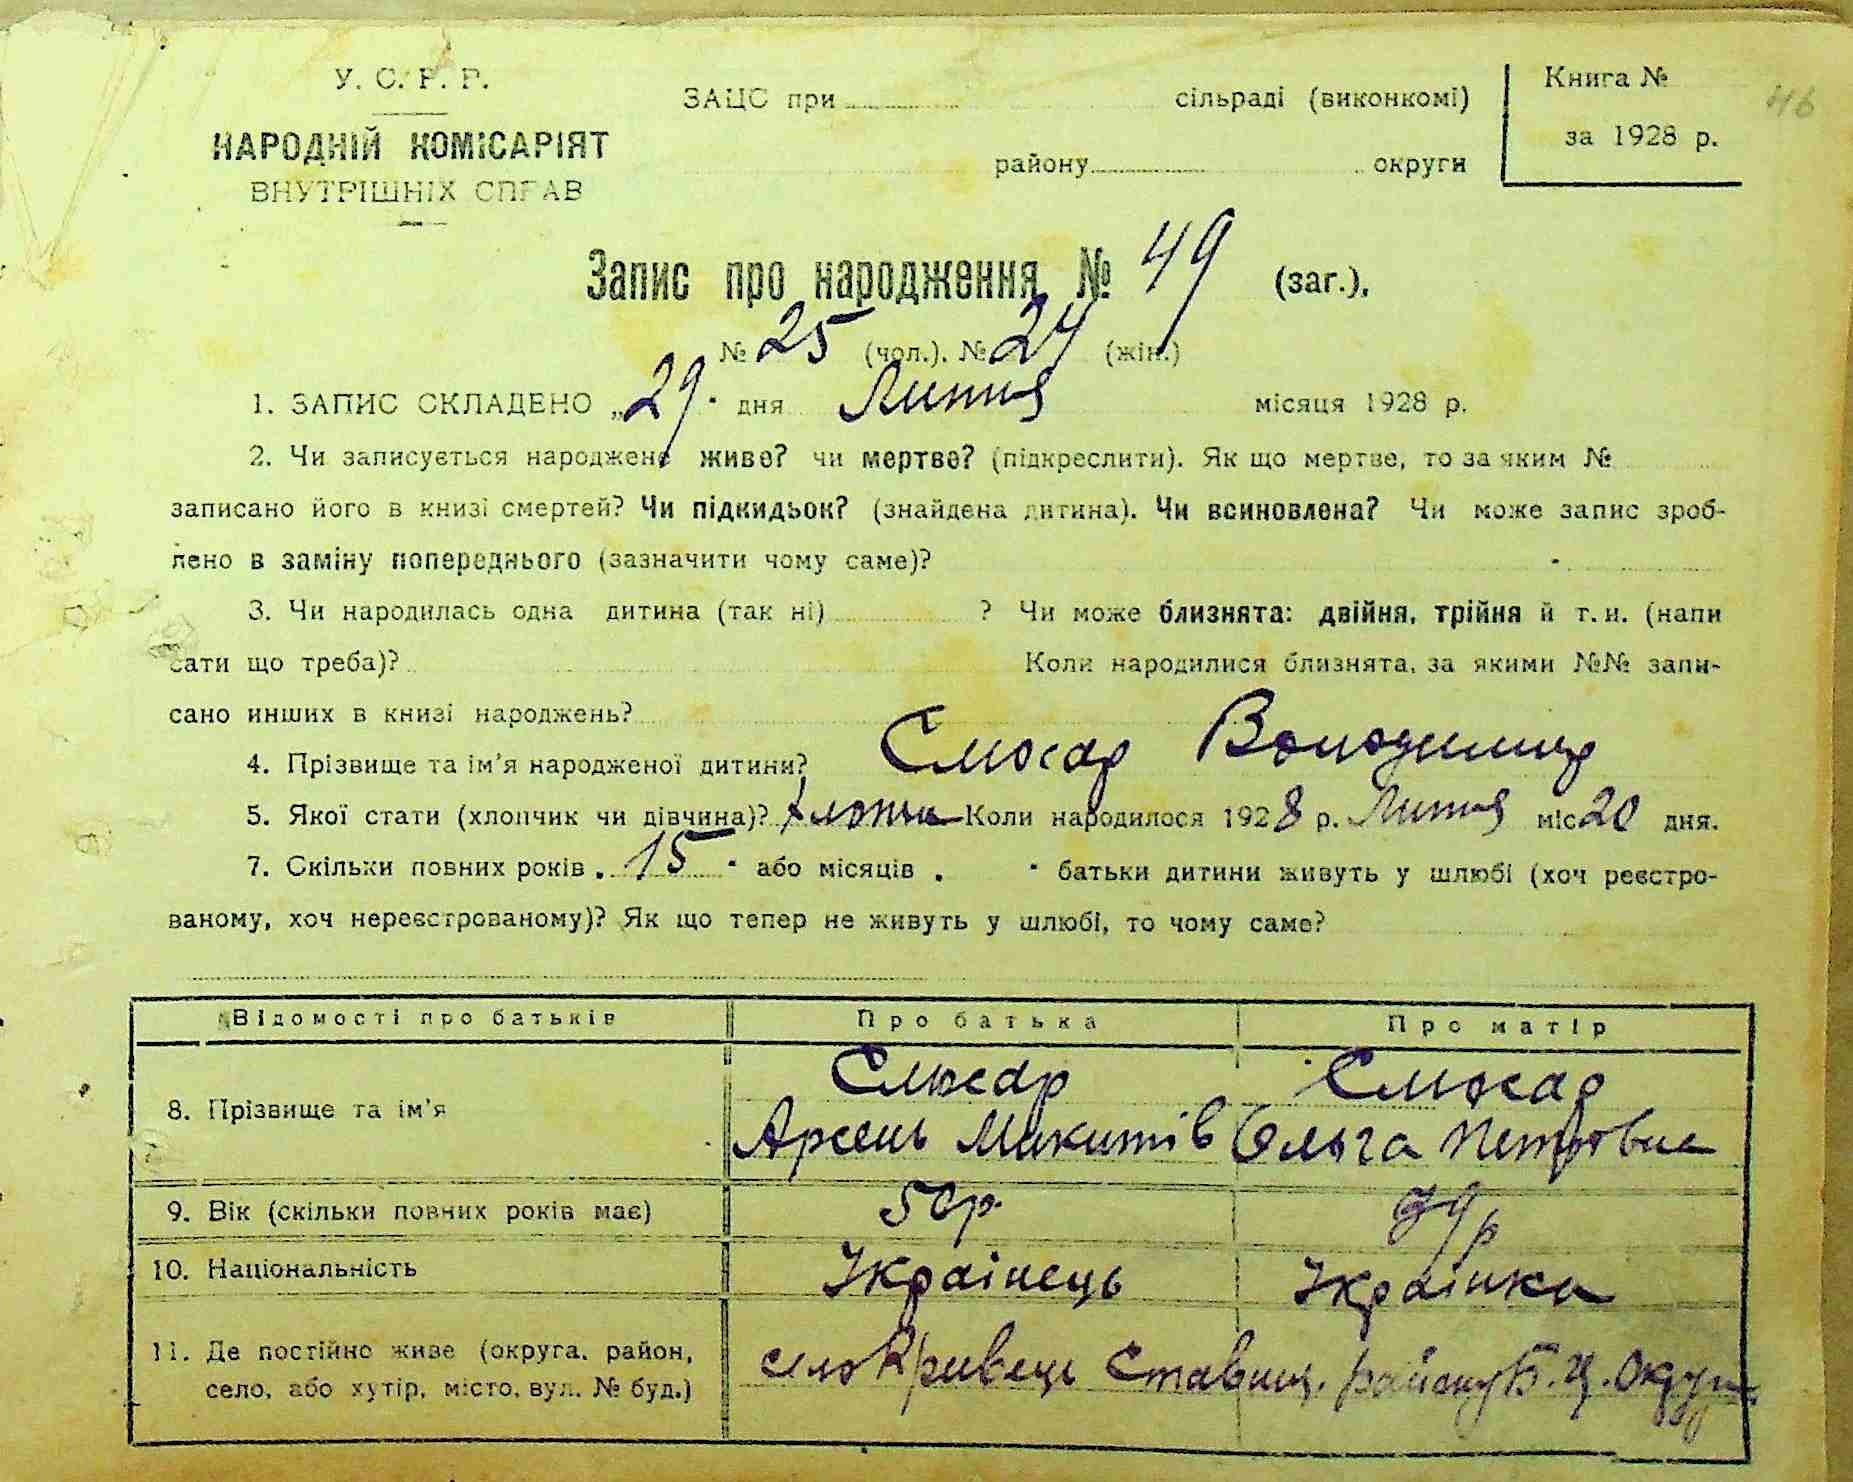 У. С. Р. Р.
НАРОДНІЙ КОМІСАРІЯТ
ВНУТРІШНІХ СПРАВ
ЗАЦС при сільраді (виконкомі)
району округи
Книга №
за 1928 р.
46
Запис про народження № 49 (заг.),
№ 25 (чол.). № 24 (жін.)
1. ЗАПИС СКЛАДЕНО „29" дня Липня місяця 1928 р.
2. Чи записується народжене живе? чи мертве? (підкреслити). Як що мертве, то за яким №
записано його в книзі смертей? Чи підкидьок? (знайдена дитина). Чи всиновлена? Чи може запис зроб-
лено в заміну попереднього (зазначити чому саме)?
3. Чи народилась одна дитина (так ні) ? Чи може близнята: двійня, трійня й т. и. (напи
сати що треба)? Коли народилися близнята, за якими №№ запи-
сано инших в книзі народжень?
4. Прізвище та ім'я народженої дитини? Слюсар Володимир
5. Якої стати (хлопчик чи дівчина)? Коли народилося 1928 р. Липня міс 20 дня.
7. Скільки повних років „15" або місяців „ " батьки дитини живуть у шлюбі (хоч реєстро-
ваному, хоч нереєстрованому)? Як що тепер не живуть у шлюбі, то чому саме?
Відомості про батьків Про батька Про матір
8. Прізвище та ім'я
Слюсар Слюсар
Арсень Микитів Ольга Петровна
9. Вік (скільки повних років має) 50р.
10. Національність Українець Українка
11. Де постійно живе (округа, район,
село, або хутір, місто, вул. № буд.)
село Кривець Ставищ. району Б. Ц. Округи